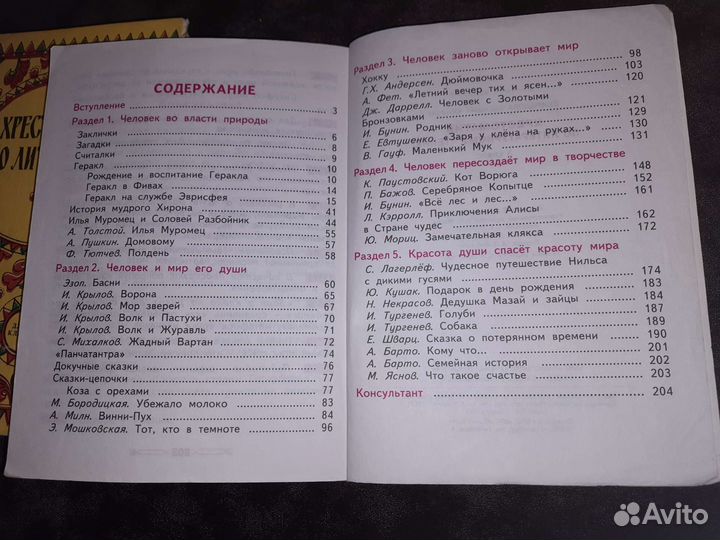 ХРЕСТ
О ЛИ
СОДЕРЖАНИЕ
Вступление 3
Раздел 1. Человек во власти природы
Заклички 6
Загадки 8
Считалки 9
Геракл 10
Рождение и воспитание Геракла 10
Геракл в Фивах 14
Геракл на службе Эврисфея 15
История мудрого Хирона 41
Илья Муромец и Соловей Разбойник 44
А. Толстой. Илья Муромец 55
А. Пушкин. Домовому 57
Ф. Тютчев. Полдень 58
Раздел 2. Человек и мир его души
Эзоп. Басни 60
И. Крылов. Ворона 65
И. Крылов. Мор зверей 67
И. Крылов. Волк и Пастухи 70
И. Крылов. Волк и Журавль 71
С. Михалков. Жадный Вартан 72
«Панчатантра» 74
Докучные сказки 76
Сказки-цепочки 77
Коза с орехами 77
М. Бородицкая. Убежало молоко 83
А. Милн. Винни-Пух 84
Э. Мошковская. Тот, кто в темноте 96
Раздел 3. Человек заново открывает мир
Хокку 98
Г.Х. Андерсен. Дюймовочка 103
А. Фет. «Летний вечер тих и ясен...» 120
Дж. Даррелл. Человек с Золотыми
Бронзовками 121
И. Бунин. Родник 129
Е. Евтушенко. «Заря у клёна на руках...» 130
В. Гауф. Маленький Мук 131
Раздел 4. Человек пересоздаёт мир в творчестве
К. Паустовский. Кот Ворюга 148
П. Бажов. Серебряное Копытце 152
И. Бунин. «Всё лес и лес...» 161
Л. Кэрролл. Приключения Алисы
в Стране чудес 162
Ю. Мориц. Замечательная клякса 172
Раздел 5. Красота души спасёт красоту мира
С. Лагерлёф. Чудесное путешествие Нильса
с дикими гусями 174
Ю. Кушак. Подарок в день рождения 183
Н. Некрасов. Дедушка Мазай и зайцы 184
И. Тургенев. Голуби 187
И. Тургенев. Собака 189
Е. Шварц. Сказка о потерянном времени 190
А. Барто. Кому что... 201
А. Барто. Семейная история 202
М. Яснов. Что такое счастье 203
Консультант 204
Avito